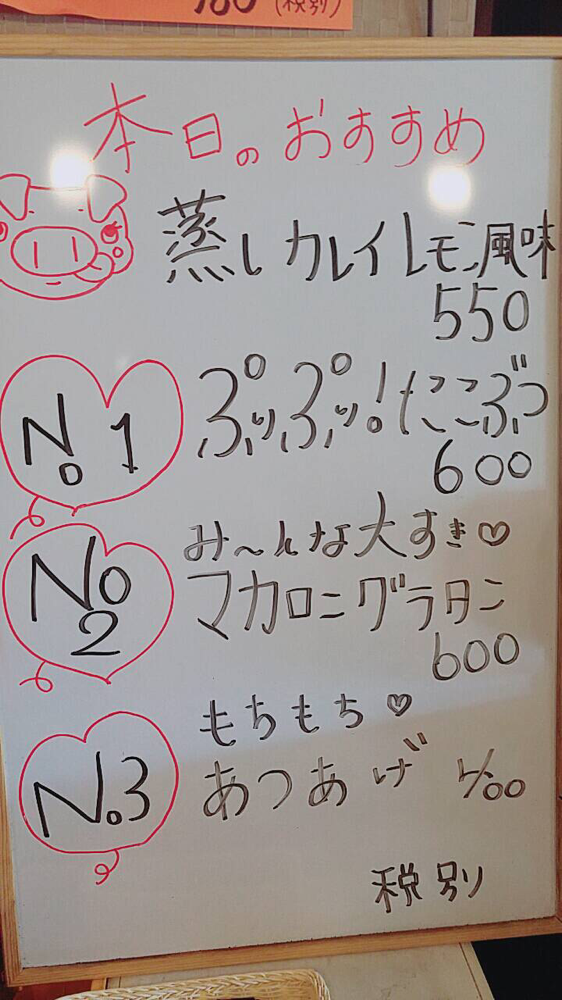 (税別)
本日のおすすめ
蒸しカレイレモン風味
550
No1
ぷりぷり!たこぶつ
600
No2
み~んな大すき♡
マカロニグラタン
600
No.3
もちもち♡
あつあげ 400
税別